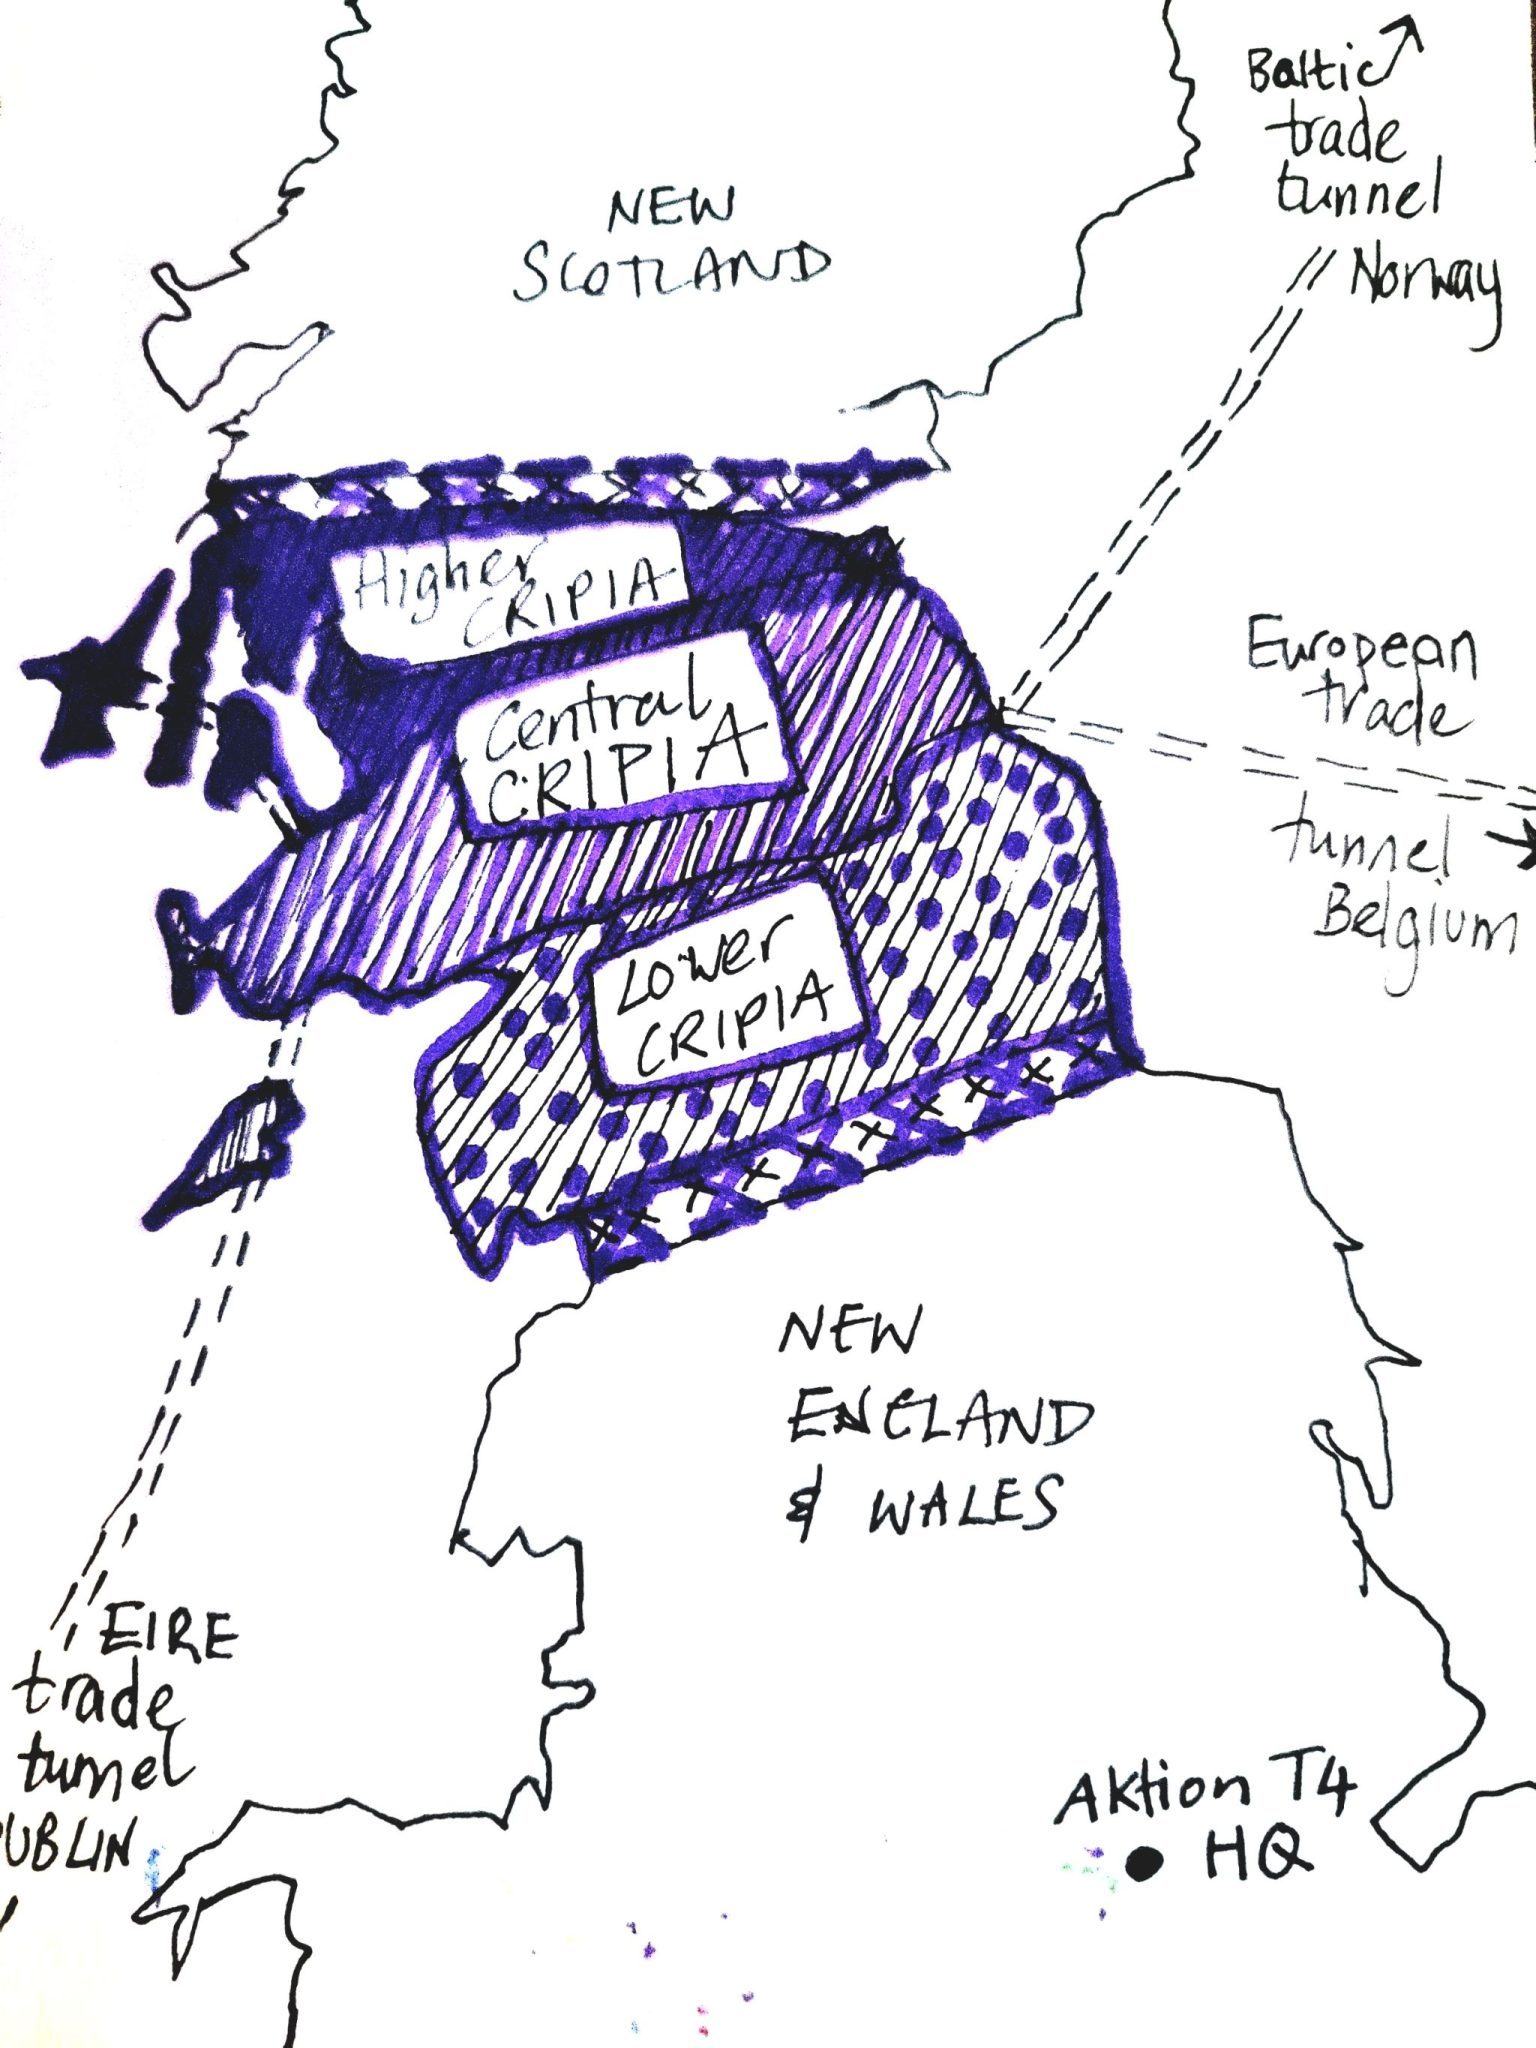 Baltic
trade
tunnel
Norway
NEW
SCOTLAND
Higher
CRIPIA
Central
CRIPIA
European
trade
tunnel
Belgium
Lower
CRIPIA
NEW
ENGLAND
& WALES
EIRE
trade
tunnel
DUBLIN
Aktion T4
HQ